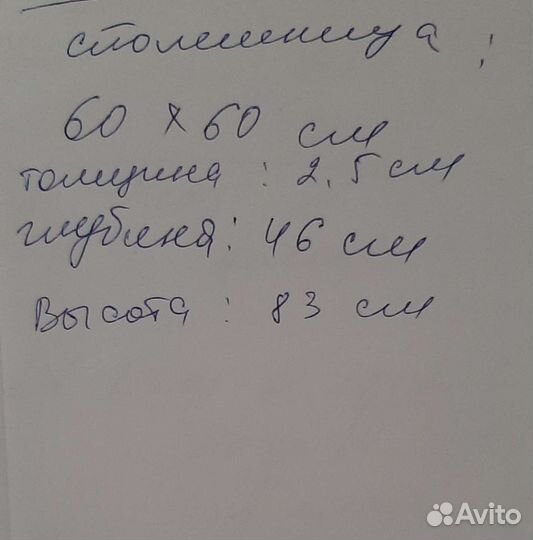 столешница :
60 x 60 см
толщина : 2.5 см
глубина : 46 см
Высота : 83 см
Avito